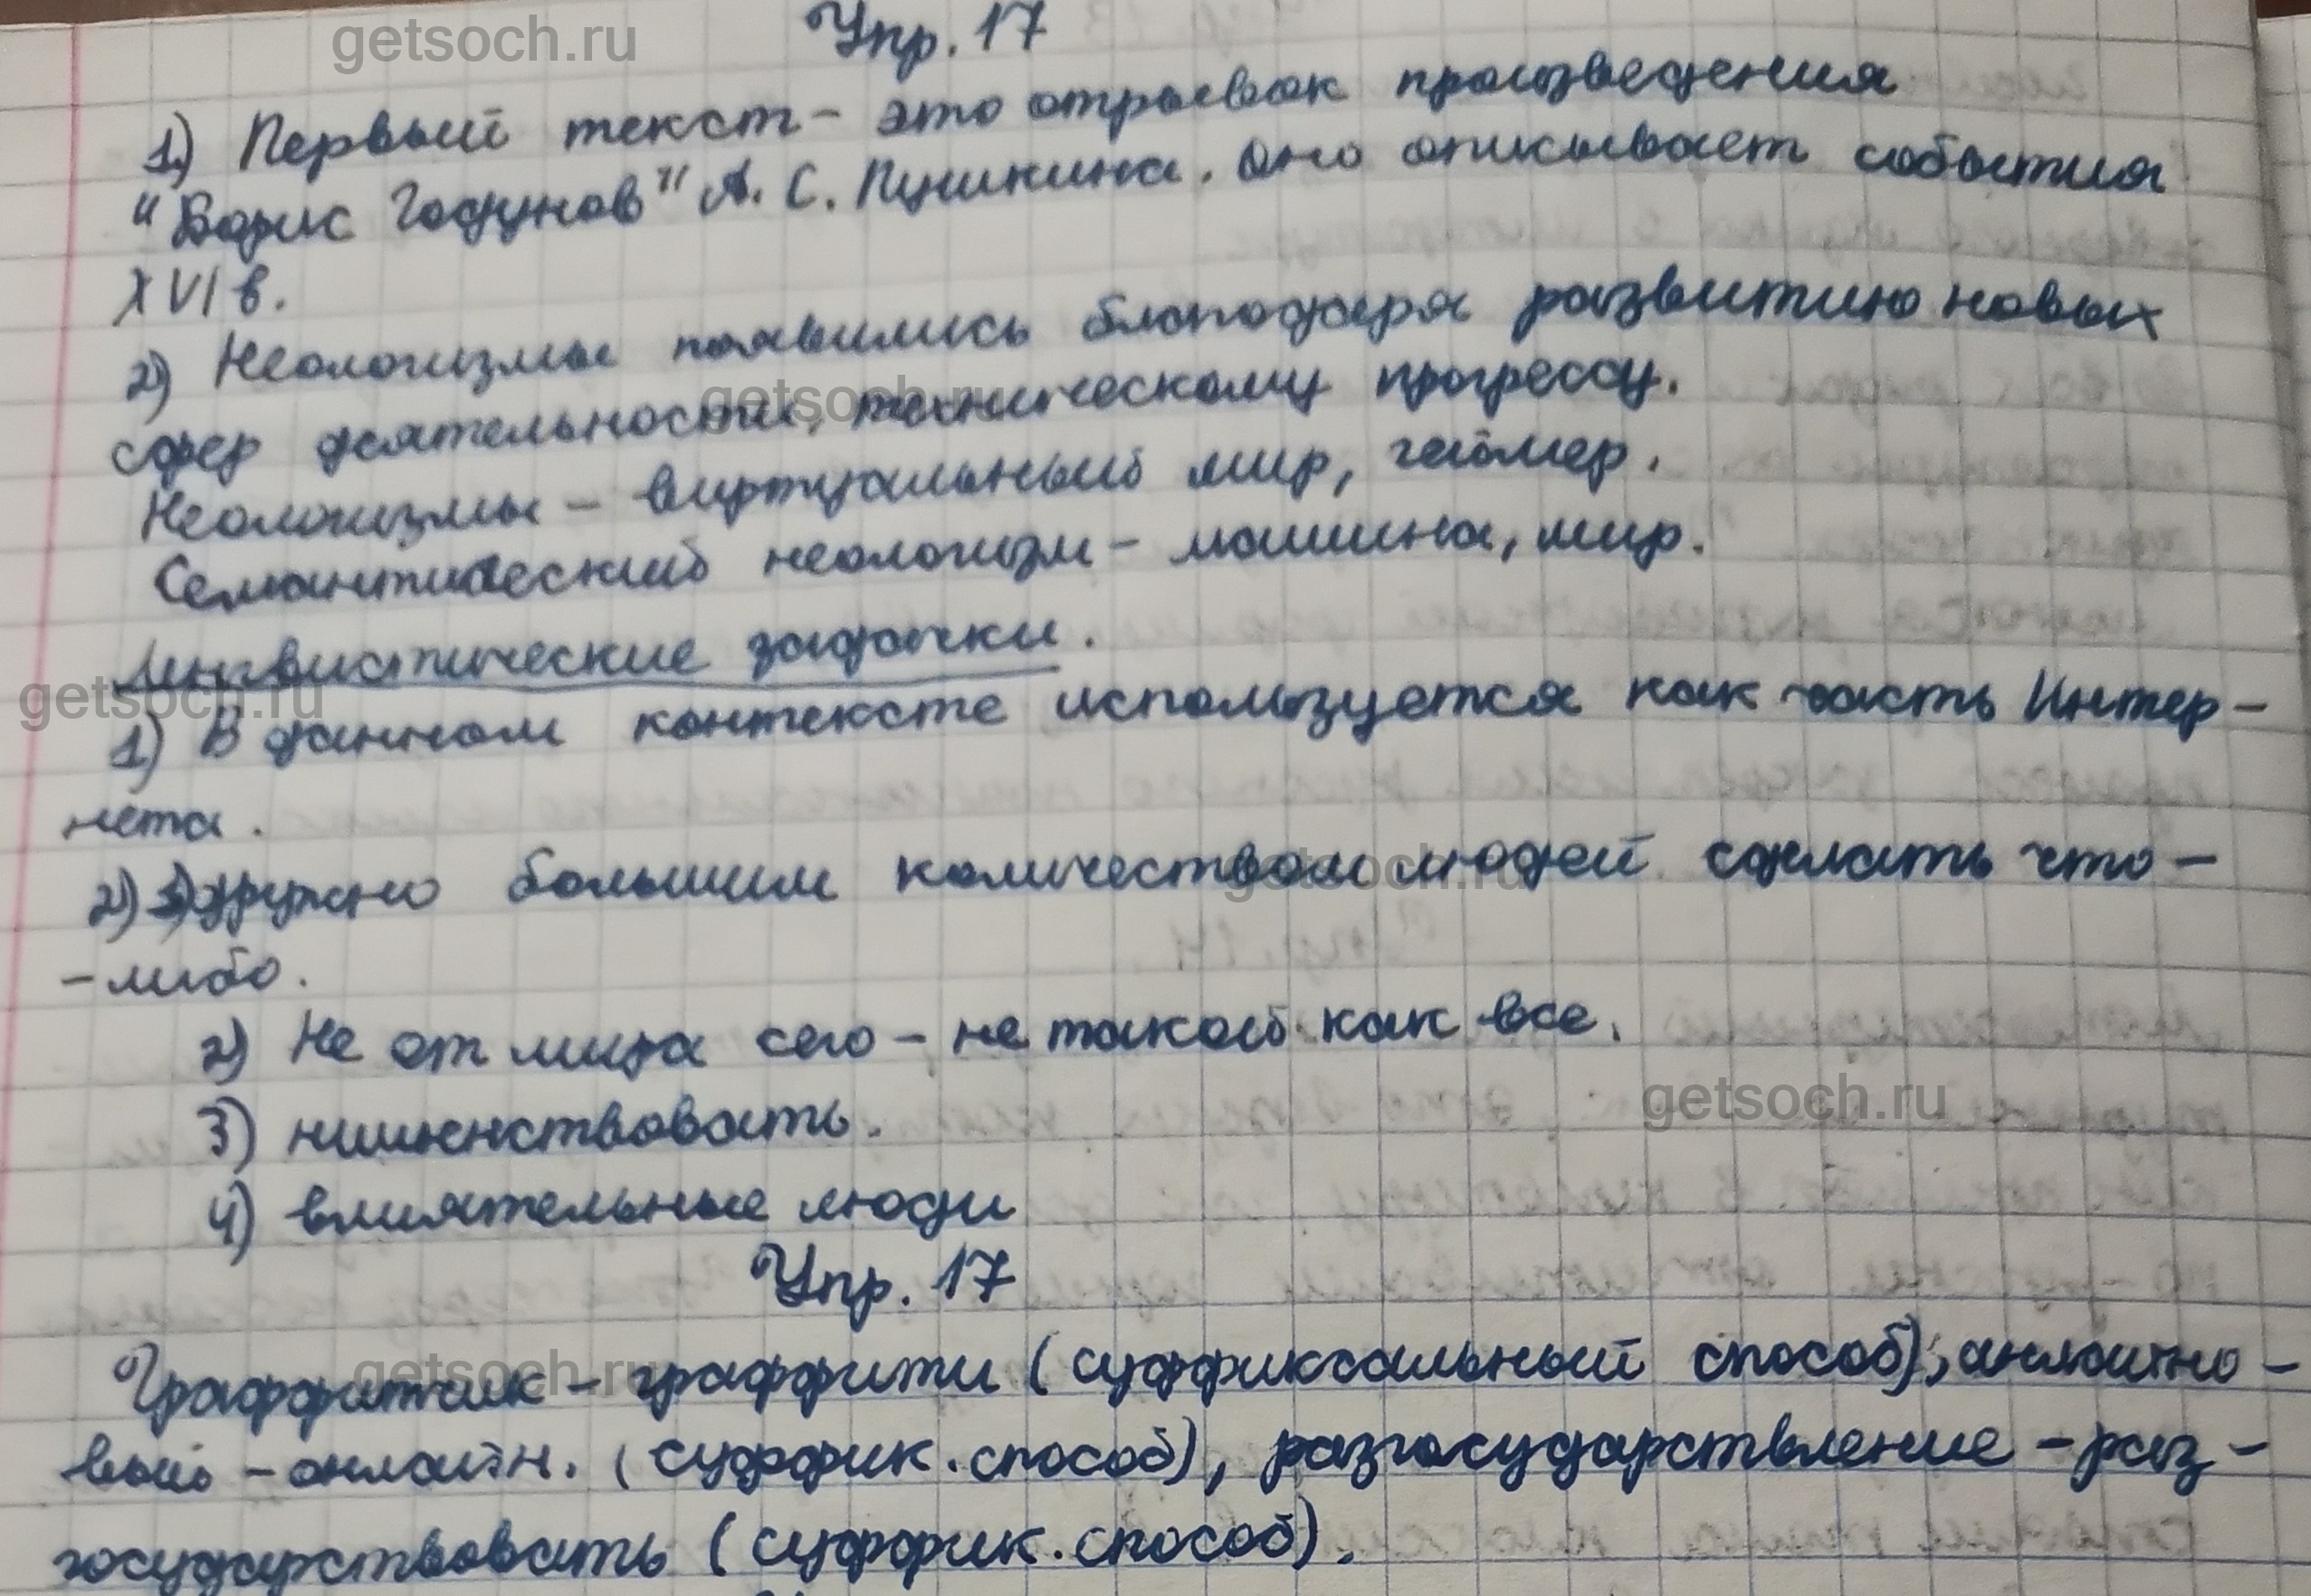 getsoch.ru
Упр. 17
1) Первый текст - это отрывок произведения
"Борис Годунов" А. С. Пушкина. Оно описывает события
XVI в.
2) Неологизмы появились благодаря развитию новых
getsoch.ru
сфер деятельности, техническому прогрессу.
Неологизмы - виртуальный мир, геймер.
Семантический неологизм - машина, мир.
Лингвистические задачки.
getsoch.ru
1) В данном контексте используется как часть Интер-
нета.
2) дружно большим количеством людей сделать что-
getsoch.ru
-либо.
2) Не от мира сего - не такой как все.
3) нищенствовать.
getsoch.ru
4) влиятельные люди
Упр. 17
getsoch.ru
Граффитчик - граффити (суффиксальный способ), онлайно-
вый - онлайн. (суффик. способ), разгосударствление - раз-
государствовать (суффик. способ).